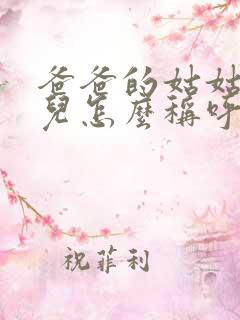 爸爸的姑姑
兒怎麼稱呼
祝菲利